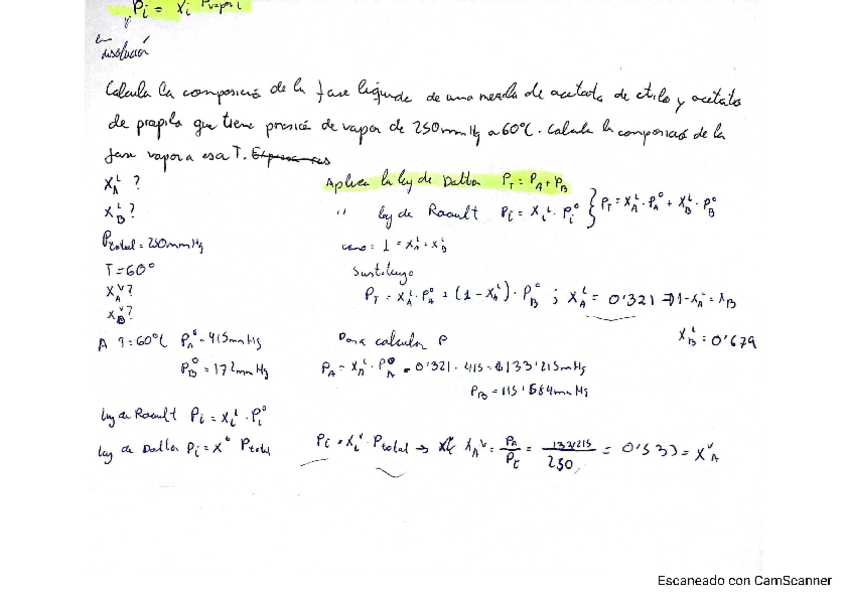 Pi = Xi Pvapor i
en
disolución
Calcula la composición de la fase líquida de una mezcla de acetato de etilo y acetato
de propilo que tiene presión de vapor de 250mmHg a 60°C. Calcula la composición de la
fase vapor a esa T.
X_A^L ?
Aplica la ley de Dalton P_T = P_A + P_B
X_B^L ?
" ley de Raoult Pi = Xi^L · Pi^0 } P_T = X_A^L · P_A^0 + X_B^L · P_B^0
Ptotal = 250mmHg
como: 1 = X_A^L + X_B^L
T = 60°
Sustituyo
X_A^V ?
P_T = X_A^L · P_A^0 + (1 - X_A^L) · P_B^0 ; X_A^L = 0'321 → 1 - X_A^L = X_B
X_B^V ?
X_B^L = 0'679
A T = 60°C P_A^0 = 415mmHg
Para calcular P
P_B^0 = 172mmHg
P_A = X_A^L · P_A^0 = 0'321 · 415 = 133'215mmHg
P_B = 115'584mmHg
Ley de Raoult Pi = Xi^L · Pi^0
Ley de Dalton Pi = X^V Ptotal
Pi = Xi^V · Ptotal → X_A^V = P_A/P_t = 133'215/250 = 0'533 = X_A^V
Escaneado con CamScanner